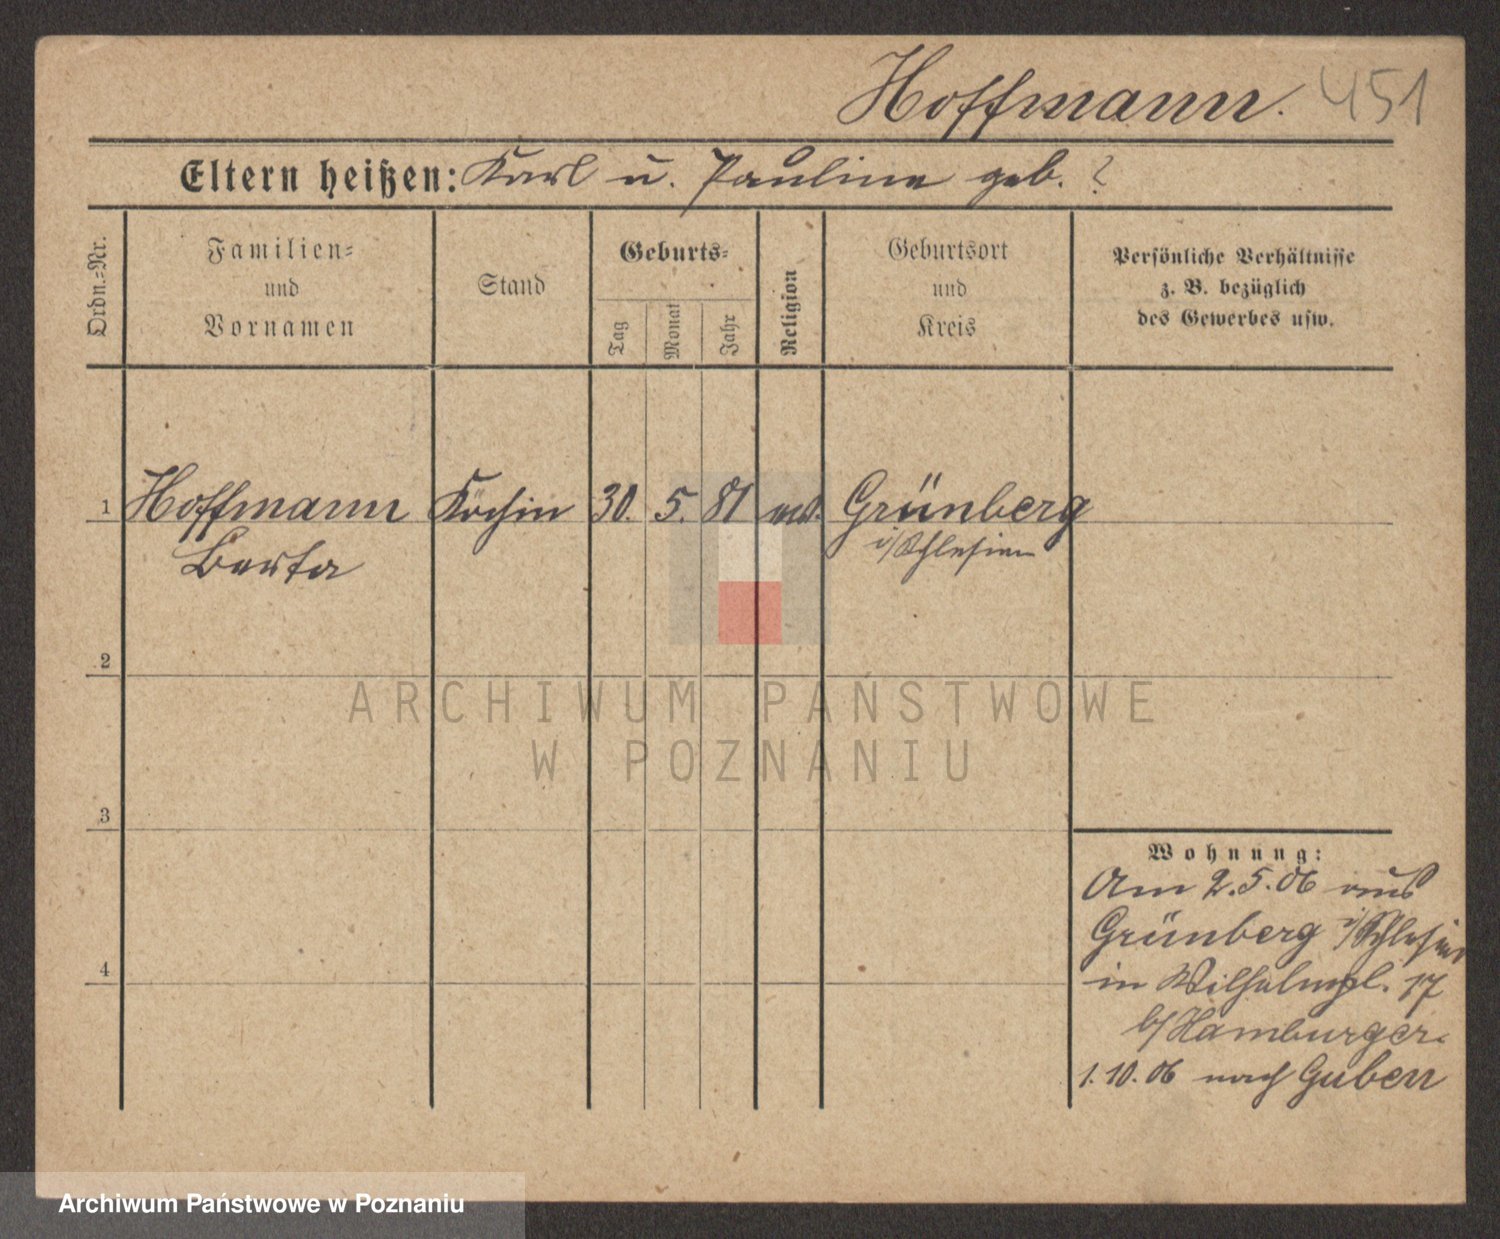 Hoffmann. 451
Eltern heißen: Karl u. Pauline geb. ?
Ordn.=Nr.
Familien=
und
Vornamen
Stand
Geburts=
Tag
Monat
Jahr
Religion
Geburtsort
und
Kreis
Persönliche Verhältnisse
z. B. bezüglich
des Gewerbes usw.
1 Hoffmann Köchin 30. 5. 81 Grünberg
Berta i/Schlesien
2
3
4
Wohnung:
Am 2.5.06 aus
Grünberg i/Schlesien
in Wilhelmpl. 17
b/Hamburger.
1.10.06 nach Guben
ARCHIWUM PAŃSTWOWE
W POZNANIU
Archiwum Państwowe w Poznaniu